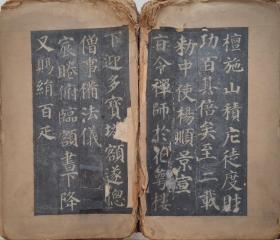 檀施山積庀徒度財
功百其倍矣至二載
勅中使楊順景宣
旨令禪師於花萼樓
下迎多寶塔額遂總
僧事備法儀
宸睠俯臨額書下降
又賜絹百疋